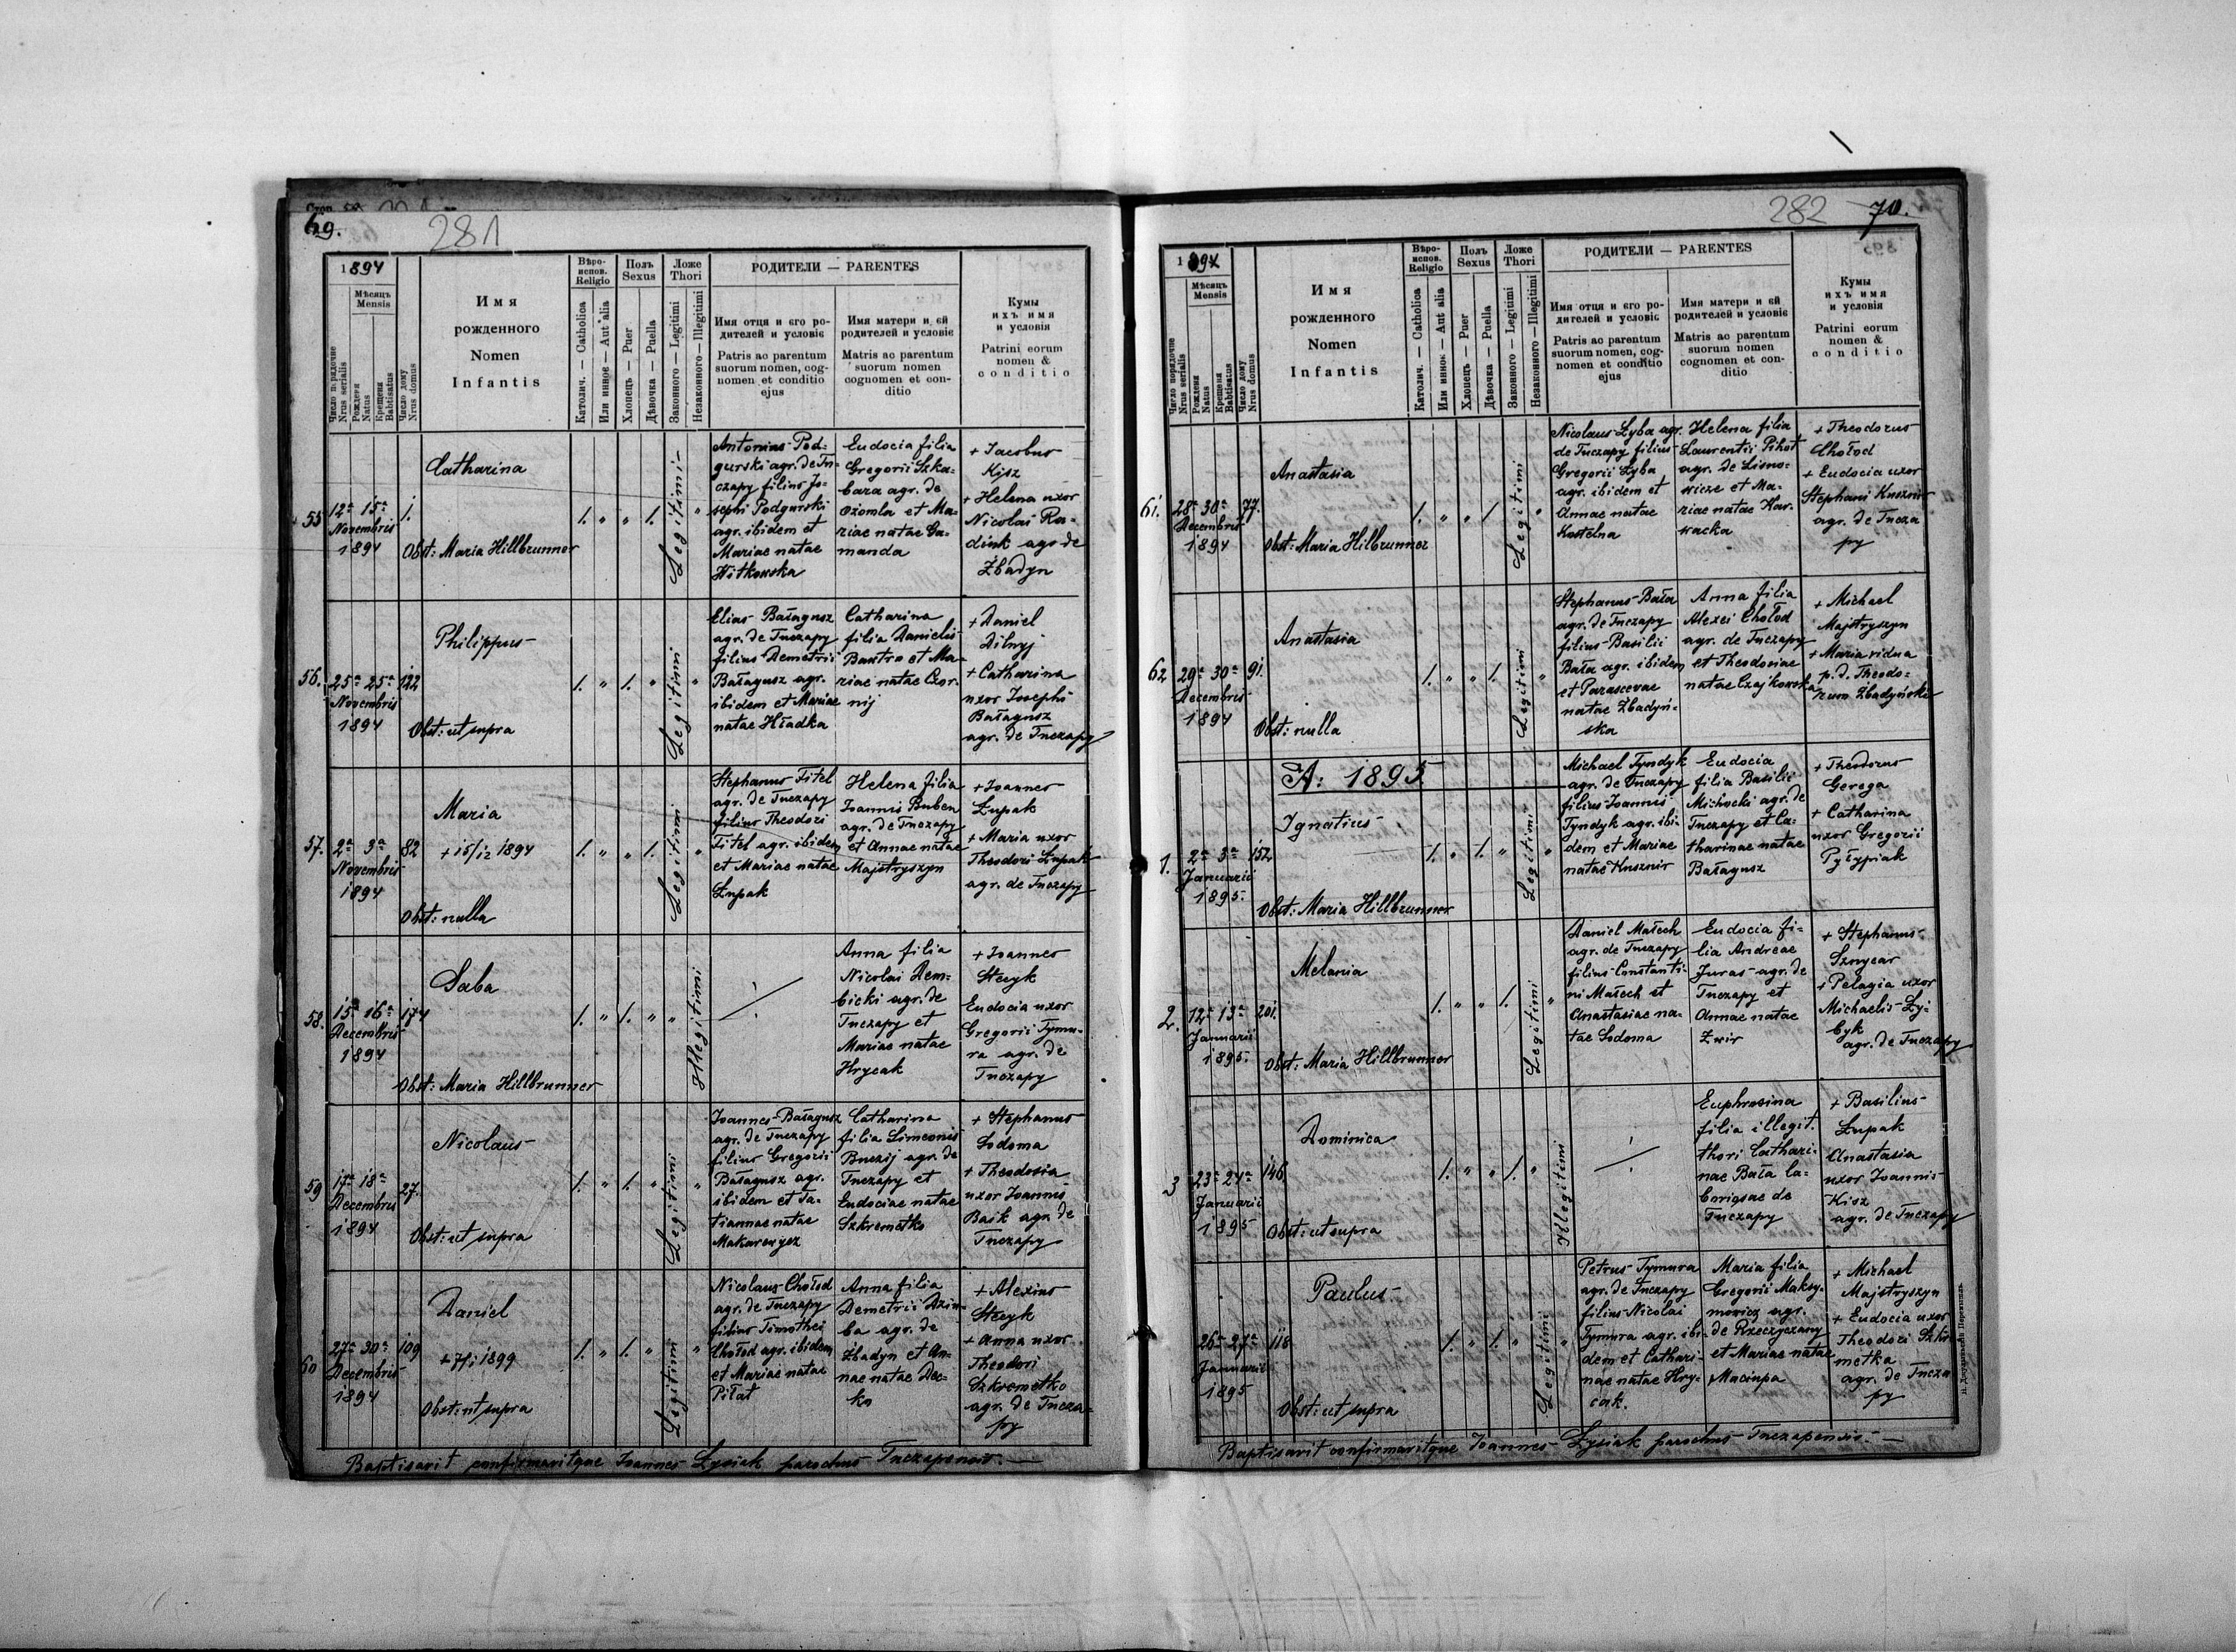 69.
281
1894
Мѣсяцъ
Mensis
Число порядочне
Nrus serialis
Рожденя
Natus
Крещеня
Babtisatus
Число дому
Nrus domus
Имя
рожденного
Nomen
Infantis
Вѣро-
испов.
Religio
Католич. — Catholica
Или инное — Aut alia
Полъ
Sexus
Хлопецъ — Puer
Дѣвочка — Puella
Ложе
Thori
Законного — Legitimi
Незаконного — Illegitimi
РОДИТЕЛИ — PARENTES
Имя отця и єго ро-
дителей и условіє
Patris ac parentum
suorum nomen, cog-
nomen et conditio
ejus
Имя матери и єй
родителей и условіє
Matris ac parentum
suorum nomen
cognomen et con-
ditio
Кумы
ихъ имя
и условія
Patrini eorum
nomen &
conditio
55
12a 15a
Novembris
1894
1.
Catharina
Obst: Maria Hillbrunner
1. " " 1.
Legitimi
"
Antonius Pod-
gurski agr. de Tu-
czapy filius Jo-
sephi Podgurski
agr. ibidem et
Mariae natae
Witkowska
Eudocia filia
Gregorii Szka-
bara agr. de
Ożomla et Ma-
riae natae Ga-
manda
+ Iacobus
Kisz
+ Helena uxor
Nicolai Ra-
dink agr de
Zbadyn
56.
25a 25a
Novembris
1894
122
Philippus
Obst: ut supra
1. " 1. "
Legitimi
"
Elias Bałagusz
agr. de Tuczapy
filius Demetrii
Bałagusz agr.
ibidem et Mariae
natae Hładka
Catharina
filia Danielis
Bautro et Ma-
riae natae Czor-
nij
+ Daniel
Dilnyj
+ Catharina
uxor Josephi
Bałagusz
agr. de Tuczapy
57.
2a 3a
Novembris
1894
82
Maria
+ 15/12 1894
Obst: nulla
1. " " 1.
Legitimi
"
Stephanus Fitel
agr. de Tuczapy
filius Theodori
Fitel agr. ibidem
et Mariae natae
Łupak
Helena filia
Ioannis Buben
agr. de Tuczapy
et Annae natae
Majstryszyn
+ Ioannes
Łupak
+ Maria uxor
Theodori Łupak
agr. de Tuczapy
58.
15a 16a
Decembris
1894
174
Saba
Obst: Maria Hillbrunner
1. " 1. " "
Illegitimi
Anna filia
Nicolai Dem-
bicki agr. de
Tuczapy et
Mariae natae
Hrycak
+ Ioannes
Stecyk
Eudocia uxor
Gregorii Tymu-
ra agr. de
Tuczapy
59
17a 18a
Decembris
1894
27.
Nicolaus
Obst: ut supra
1. " 1. "
Legitimi
"
Ioannes Bałagusz
agr. de Tuczapy
filius Gregorii
Bałagusz agr.
ibidem et Ta-
tiannae natae
Makarewycz
Catharina
filia Simeonis
Buczij agr. de
Tuczapy et
Eudociae natae
Szkrometko
+ Stephanus
Sodoma
+ Theodosia
uxor Ioannis
Baik agr. de
Tuczapy
60
27a 30a
Decembris
1894
109
Daniel
+ 7/1 1899
Obst: ut supra
1. " 1. "
Legitimi
"
Nicolaus Chołod
agr. de Tuczapy
filius Timothei
Chołod agr. ibidem
et Mariae natae
Piłat
Anna filia
Demetrii Dziu-
ba agr. de
Zbadyn et An-
nae natae Dec-
ko
+ Alexius
Stecyk
+ Anna uxor
Theodori
Szkrometko
agr. de Tucza-
py
Baptisavit confirmavitque Ioannes Lysiak parochus Tuczapensis.
282
70.
1894
Мѣсяцъ
Mensis
Число порядочне
Nrus serialis
Рожденя
Natus
Крещеня
Babtisatus
Число дому
Nrus domus
Имя
рожденного
Nomen
Infantis
Вѣро-
испов.
Religio
Католич. — Catholica
Или инноє — Aut alia
Полъ
Sexus
Хлопецъ — Puer
Дѣвочка — Puella
Ложе
Thori
Законного — Legitimi
Незаконного — Illegitimi
РОДИТЕЛИ — PARENTES
Имя отця и єго ро-
дителей и условіє
Patris ac parentum
suorum nomen, cog-
nomen et conditio
ejus
Имя матери и єй
родителей и условіє
Matris ac parentum
suorum nomen
cognomen et con-
ditio
Кумы
ихъ имя
и условія
Patrini eorum
nomen &
conditio
61.
28a 30a
Decembris
1894
77.
Anastasia
Obst: Maria Hilbrunner
1. " " 1.
Legitimi
"
Nicolaus Lyba agr.
de Tuczapy filius
Gregorii Lyba
agr. ibidem et
Annae natae
Kostelna
Helena filia
Laurentii Pihot
agr. de Lisno-
wicze et Ma-
riae natae Har-
wacka
+ Theodorus
Chołod
+ Eudocia uxor
Stephani Kusznir
agr. de Tucza
py
62
29a 30a
Decembris
1894
91.
Anastasia
Obst: nulla
1. " " 1.
Legitimi
"
Stephanus Bała
agr. de Tuczapy
filius Basilii
Bała agr. ibidem
et Parascevae
natae Zbadyń-
ska
Anna filia
Alexei Chołod
agr. de Tuczapy
et Theodosiae
natae Czajkowska
+ Michael
Majstryszyn
+ Maria vidua
p. d. Theodo-
rum Zbadyński
A: 1895
1.
2a 3a
Januarii
1895.
152
Ignatius
Obst: Maria Hillbrunner
1. " 1. "
Legitimi
"
Michael Tyndyk
agr. de Tuczapy
filius Ioannis
Tyndyk agr. ibi-
dem et Mariae
natae Kusznir
Eudocia
filia Basilii
Michocki agr. de
Tuczapy et Ca-
tharinae natae
Bałagusz
+ Theodorus
Gerega
+ Catharina
uxor Gregorii
Pyłypiak
2.
12a 13a
Januarii
1895.
201.
Melania
Obst: Maria Hillbrunner
1. " " 1.
Legitimi
"
Daniel Małech
agr. de Tuczapy
filius Constanti-
ni Małech et
Anastasiae na-
tae Sodoma
Eudocia fi-
lia Andreae
Juras agr. de
Tuczapy et
Annae natae
Zwir
+ Stephanus
Sznycar
+ Pelagia uxor
Michaelis Ly-
byk
agr. de Tuczapy
3
23a 24a
Januarii
1895
146
Dominica
Obst: ut supra
1. " " 1. "
Illegitimi
Euphrosina
filia illegit.
thori Cathari-
nae Bała la-
Tuczapy
+ Basilius
Łupak
Anastasia
uxor Ioannis
Kisz
agr. de Tuczapy
26a 27a
Januarii
1895
118
Paulus
Obst: ut supra
1. " 1. "
Legitimi
"
Petrus Tymura
agr. de Tuczapy
filius Nicolai
Tymura agr. ibi-
dem et Cathari-
nae natae Hry-
cak.
Maria filia
Gregorii Maksy-
mowicz agr.
de Rzeczyczany
et Mariae natae
Maciupa
+ Michael
Majstryszyn
+ Eudocia uxor
Theodori Szkro-
metka
agr. de Tucza
py
Baptisavit confirmavitque Ioannes Lysiak parochus Tuczapensis.